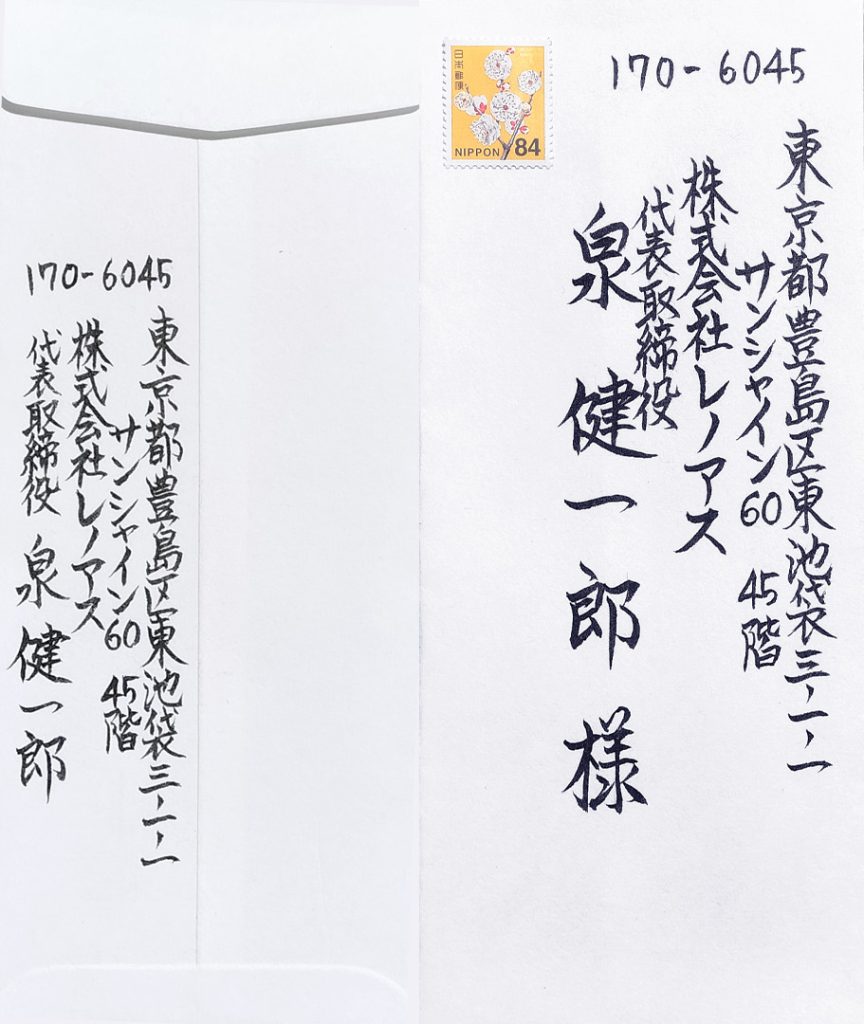 170-6045
東京都豊島区東池袋三-一-一
サンシャイン60 45階
株式会社レノアス
代表取締役 泉 健一郎
日本郵便
NIPPON 84
170-6045
東京都豊島区東池袋三-一-一
サンシャイン60 45階
株式会社レノアス
代表取締役
泉 健一郎 様